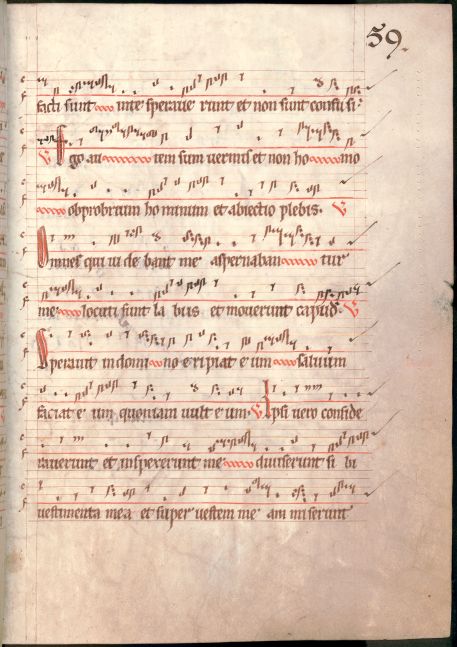 59.
facti sunt in te sperave runt et non sunt confusi.
V Ego au tem sum vermis et non ho mo
obprobrium ho minum et abiectio plebis. V
Omnes qui vi de bant me aspernaban tur
me locuti sunt la biis et moverunt caput. V
Speravit in domi no e ripiat e um salvum
faciat e um quoniam vult e um. V Ipsi vero conside
raverunt et inspexerunt me diviserunt si bi
vestimenta mea et super vestem me am miserunt